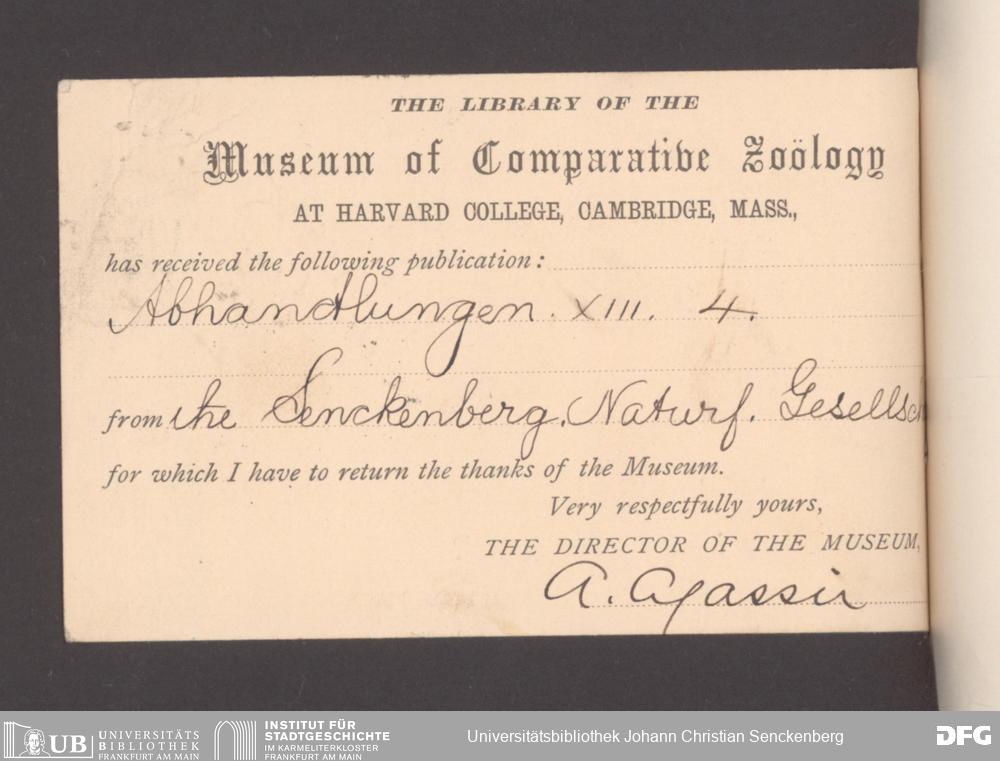 THE LIBRARY OF THE
Museum of Comparative Zoölogy
AT HARVARD COLLEGE, CAMBRIDGE, MASS.,
has received the following publication:
Abhandlungen. XIII. 4.
from the Senckenberg. Naturf. Gesellsch
for which I have to return the thanks of the Museum.
Very respectfully yours,
THE DIRECTOR OF THE MUSEUM,
A. Agassiz
UB UNIVERSITÄTS BIBLIOTHEK FRANKFURT AM MAIN
INSTITUT FÜR STADTGESCHICHTE IM KARMELITERKLOSTER FRANKFURT AM MAIN
Universitätsbibliothek Johann Christian Senckenberg
DFG